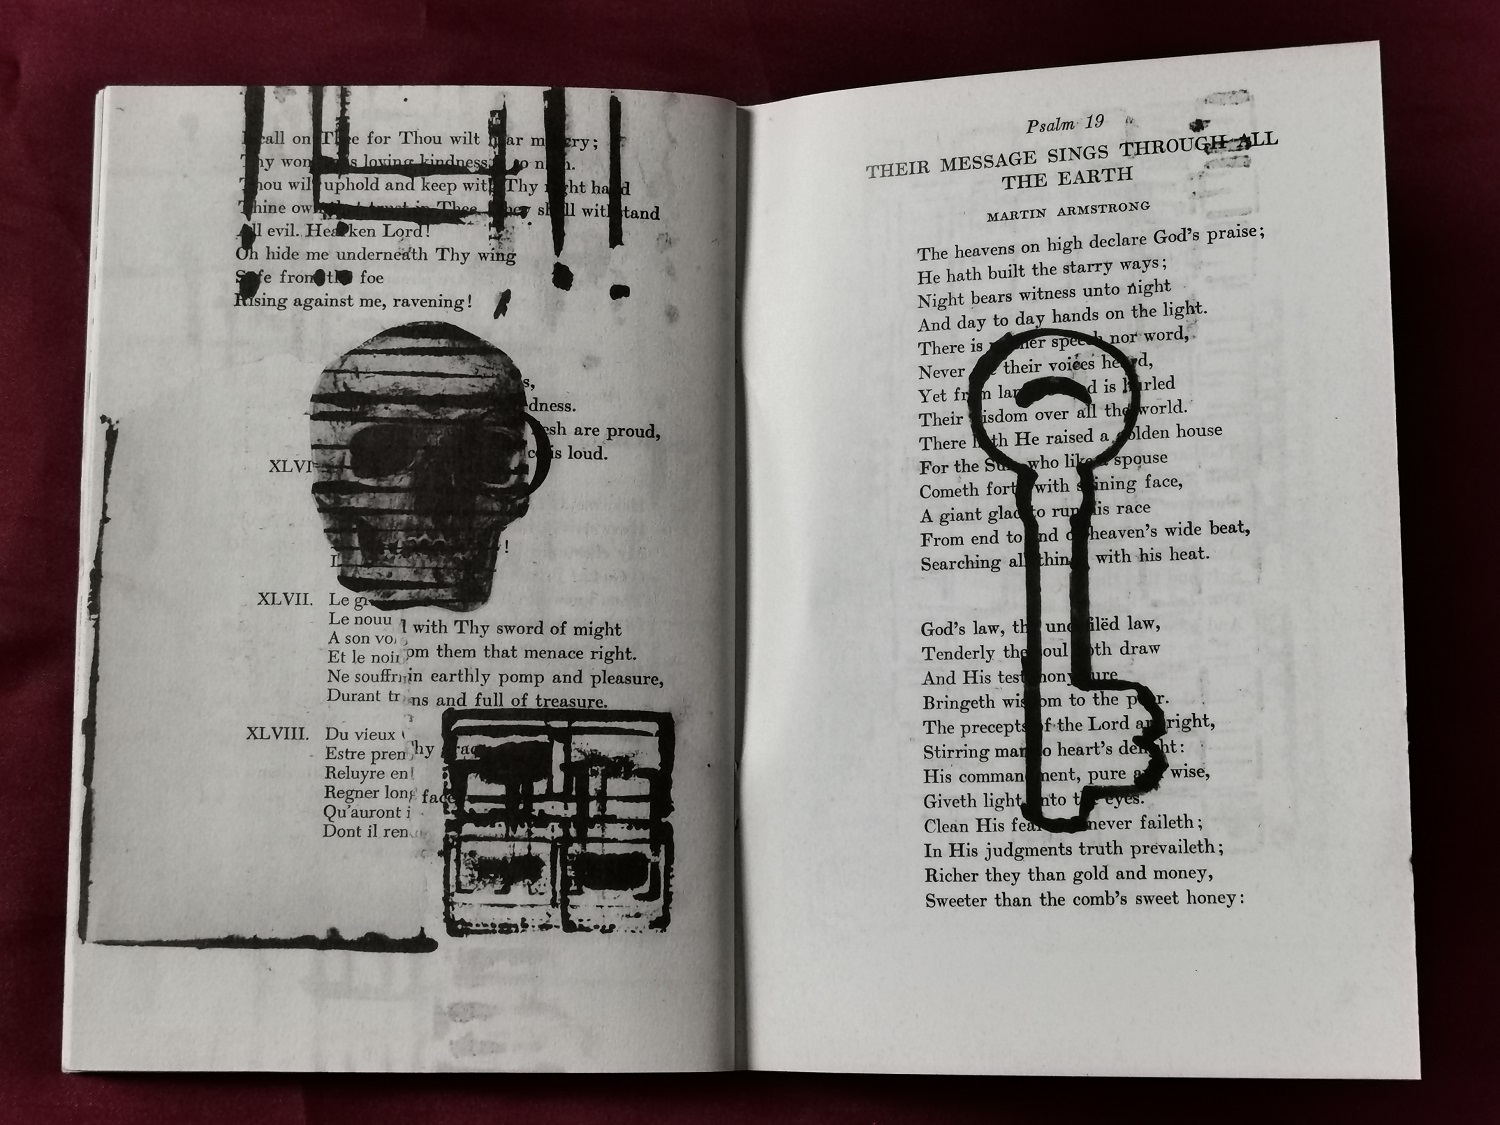 call on Thee for Thou wilt my cry;
Thy loving kindness so
Thou wilt uphold and keep with Thy right hand
Thine own that trust in Thee. They shall withstand
All evil. Hearken Lord!
Oh hide me underneath Thy wing
Safe from the foe
Rising against me, ravening!
s,
dness.
esh are proud,
is loud.
XLVI
!
XLVII. Le
Le nouu
A son
Et le noir
Ne souffr
Durant tr
with Thy sword of might
om them that menace right.
in earthly pomp and pleasure,
ns and full of treasure.
XLVIII. Du vieux
Estre pren
Reluyre en
Regner lon
Qu'auront i
Dont il ren
hy grac
face
Psalm 19
THEIR MESSAGE SINGS THROUGH ALL
THE EARTH
MARTIN ARMSTRONG
The heavens on high declare God's praise;
He hath built the starry ways;
Night bears witness unto night
And day to day hands on the light.
There is neither speech nor word,
Never their voices heard,
Yet from land is hurled
Their wisdom over all the world.
There hath He raised a golden house
For the Sun who like a spouse
Cometh forth with shining face,
A giant glad to run his race
From end to end of heaven's wide beat,
Searching all things with his heat.
God's law, the undefilëd law,
Tenderly the soul doth draw
And His testimony sure
Bringeth wisdom to the poor.
The precepts of the Lord are right,
Stirring man to heart's delight:
His commandment, pure and wise,
Giveth light unto the eyes.
Clean His fear never faileth;
In His judgments truth prevaileth;
Richer they than gold and money,
Sweeter than the comb's sweet honey: